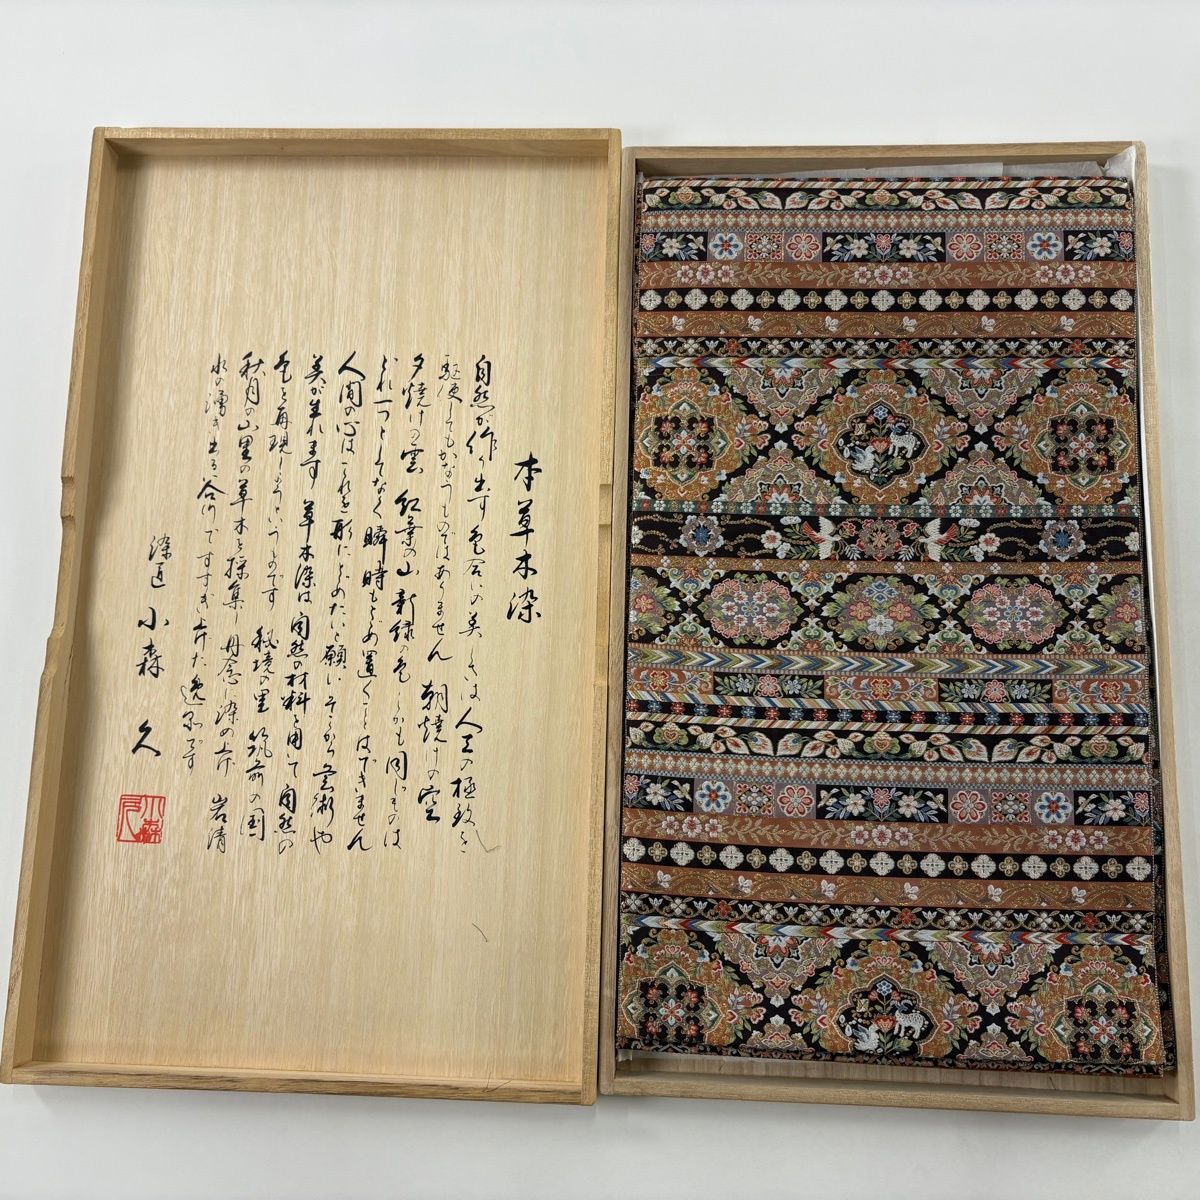 本草木染
自然が作り出す色合いの美しさは人工の極致を
駆使してもかなうものではありません 朝焼けの空
夕焼けの雲 紅葉の山 新緑の色しかも同じものは
どれ一つとしてなく瞬時もとめ置くことはできません
人間の心はこれを形にとめたいと願い そこから芸術や
美が生れます 草木染は自然の材料を用いて自然の
色を再現しようというものです 秘境の里 筑前の国
秋月の山里の草木を採集し丹念に染め上げ 岩清
水の湧き出る谷川ですすぎ上げた逸品です
染匠 小森 久
小森久